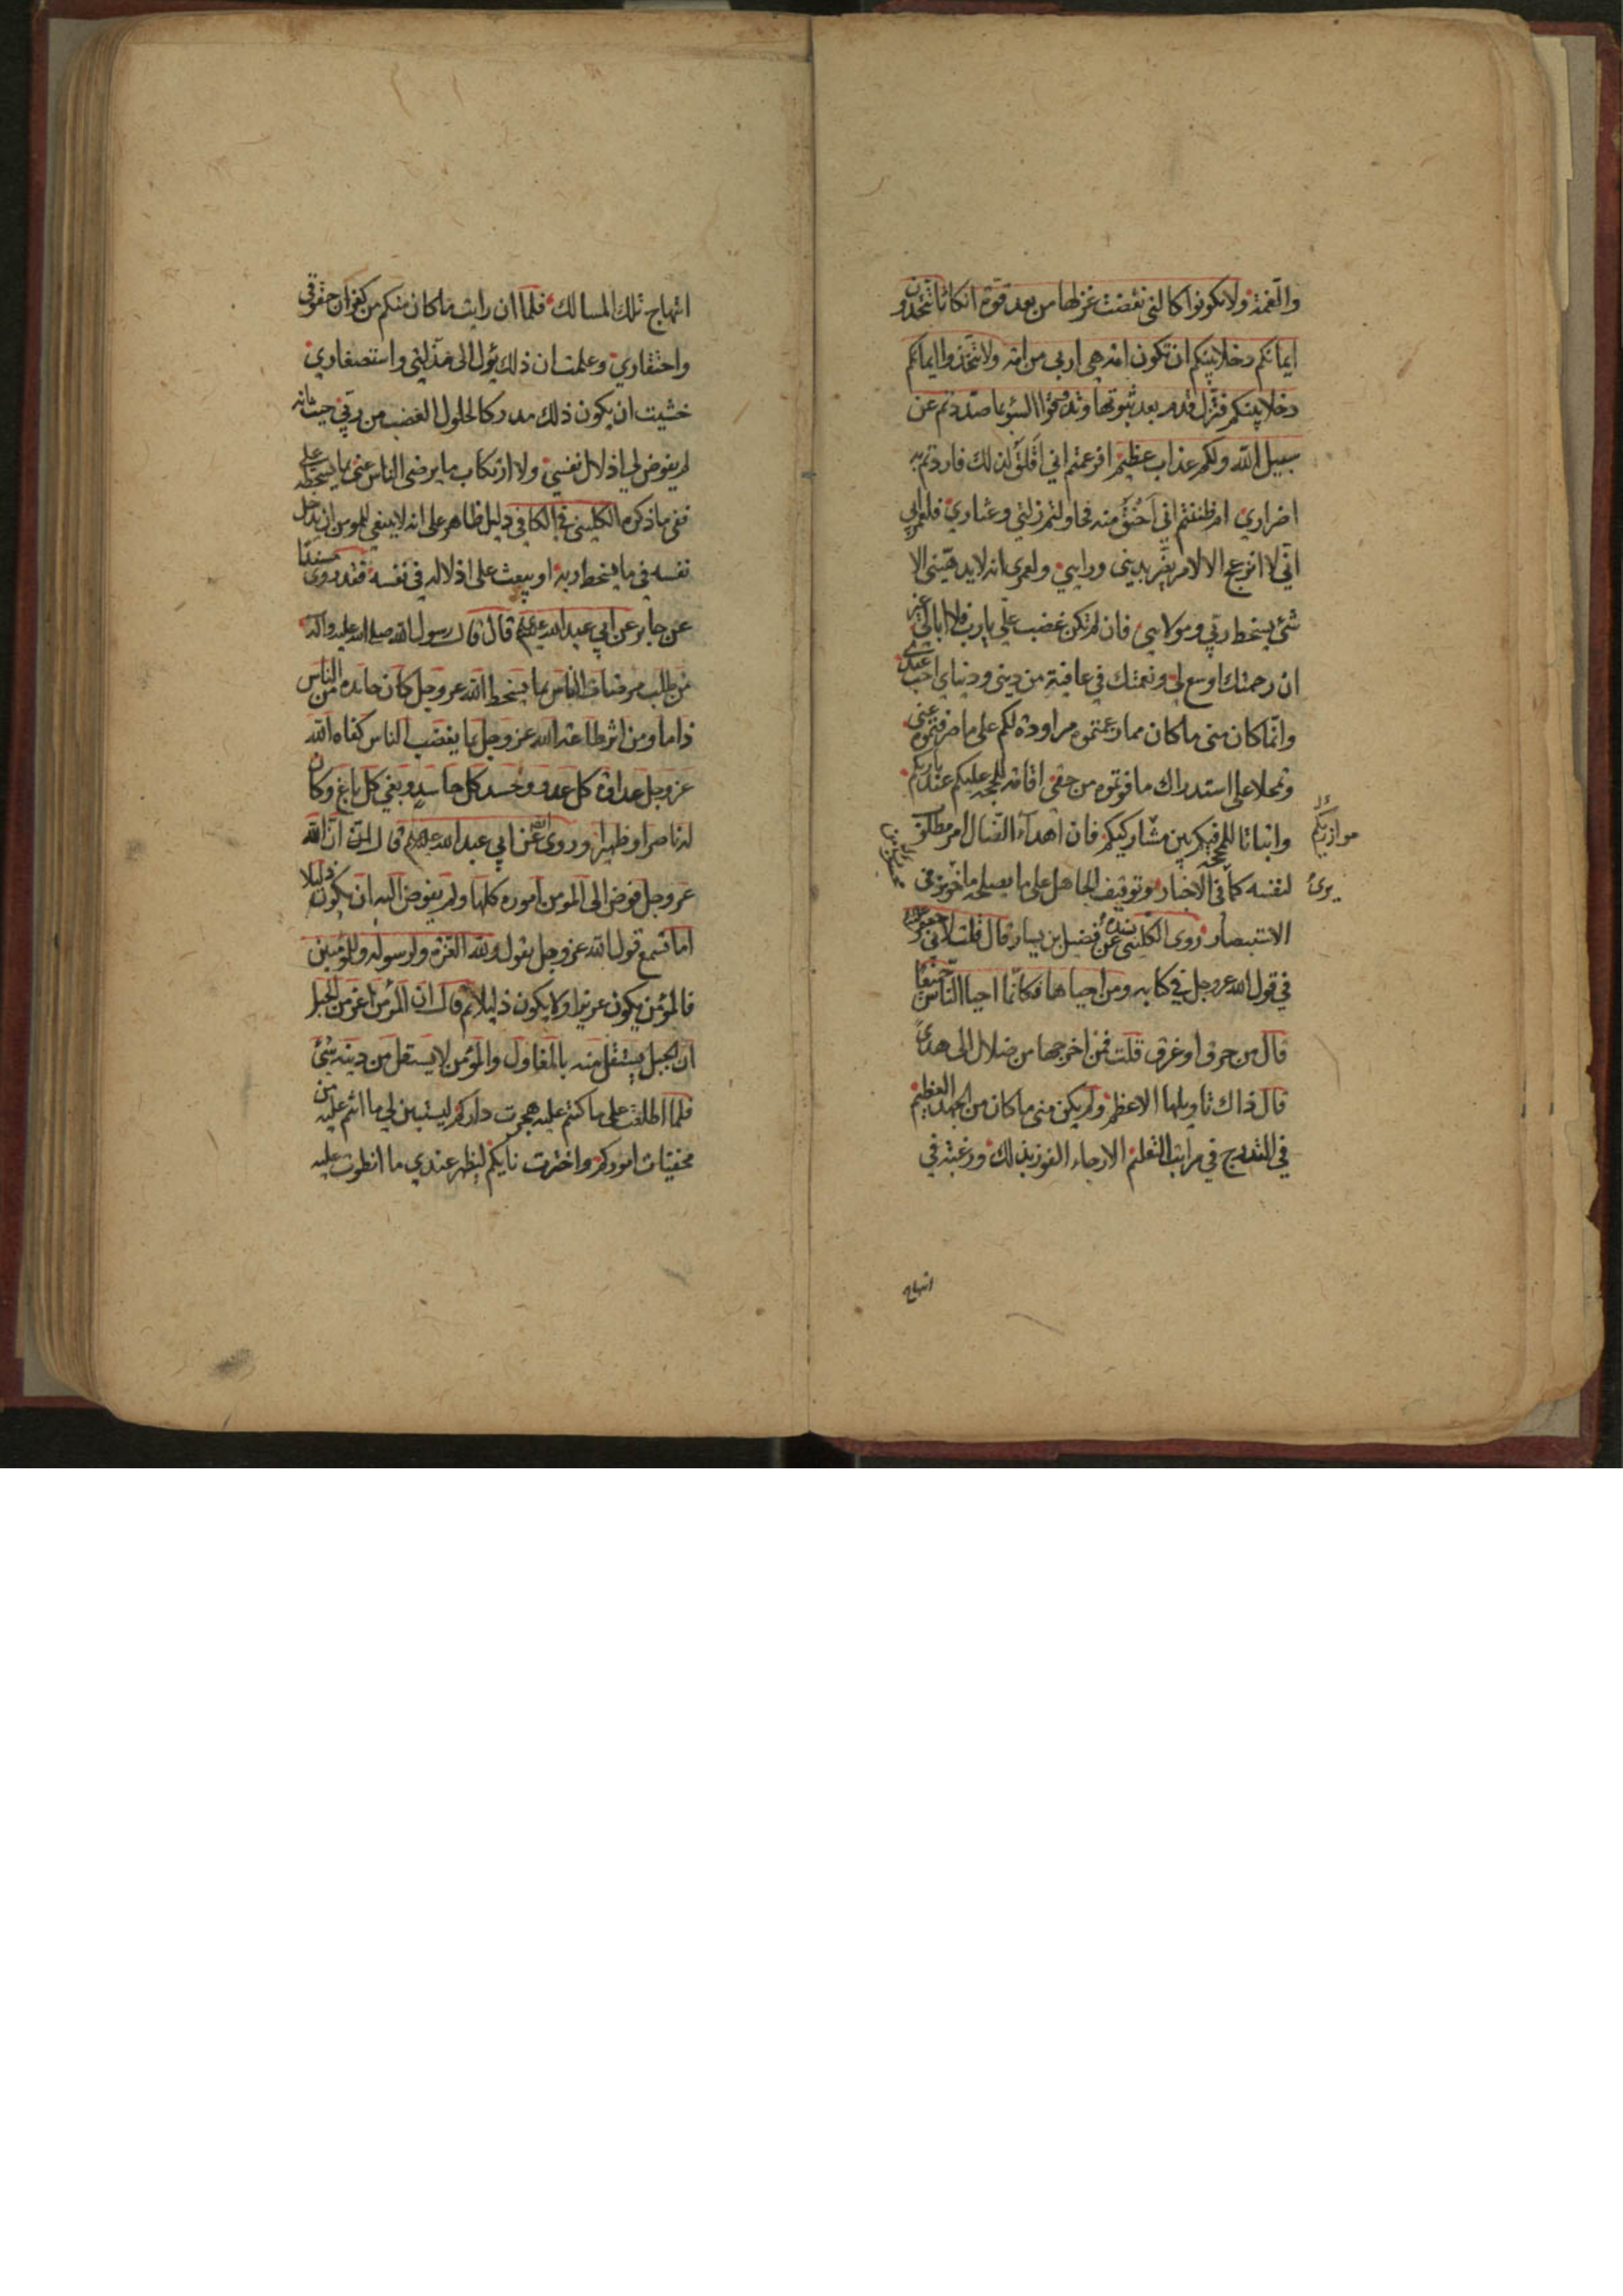 والنقمة ولا تكونوا كالتي نقضت غزلها من بعد قوة انكاثا تتخذون
ايمانكم دخلا بينكم ان تكون امة هي اربى من امة ولا تتخذوا ايمانكم
دخلا بينكم فتزل قدم بعد ثبوتها وتذوقوا السوء بما صددتم عن
سبيل الله ولكم عذاب عظيم افزعمتم اني اقلق لذلك فاردتم به
اضراري ام ظننتم اني احنق منه فحاولتم زلتي وعثاري فلعمري
اني لا انزعج الا لامر يضر بديني ورايي ولعمري انه لا يدهشني الا
شيء يسخط ربي ومولاي فان لم تكن غضبت علي يا رب فلا ابالي غير
ان رحمتك اوسع لي ونعمتك في عافية من ديني ودنياي احب عندي
وانما كان مني ما كان مما زعمتموه مراودة لكم على ما صرفتموه عني
وتمحلا على استدراك ما فوتموه من حقي اقامة للحجة عليكم عند باريكم
واثباتا للمحجة فيكم بين مشاركيكم فان اهداء الضال امر مطلوب
موازيكم
لنفسه كما في الاخبار وتوقيف الجاهل على ما يصلحه ماخوذ في
يرى
الاستبصار روى الكليني بسنده عن فضيل بن يسار قال قلت لابي جعفر
في قول الله عز وجل في كتابه ومن احياها فكانما احيا الناس جميعا
قال من حرق او غرق قلت فمن اخرجها من ضلال الى هدى
قال ذاك تاويلها الاعظم ولم يكن مني ما كان من الجهد العظيم
في التدرج في مراتب التعلم الا رجاء الفوز بذلك ورغبة في
انتهاج
انتهاج تلك المسالك فلما ان رايت ما كان منكم من كفران حقوقي
واحتقاري وعلمت ان ذلك يؤل الى مذلتي واستصغاري
خشيت ان يكون ذلك مدركا لحلول الغضب من ربي حيث انه
لم يفوض لي اذلال نفسي ولا ارتكاب ما يرضى الناس عني بما يسخطه علي
ففي ما ذكره الكليني في الكافي دليل ظاهر على انه لا ينبغي للمومن ان يدخل
نفسه في ما يسخط ربه او يبعث على اذلاله في نفسه فقد روى مسندا
عن جابر عن ابي عبد الله عليه السلم قال قال رسول الله صلى الله عليه واله
من طلب مرضات الناس بما يسخط الله عز وجل كان حامده من الناس
ذاما ومن اثر طاعة الله عز وجل بما يغضب الناس كفاه الله
عز وجل عداوة كل عدو وحسد كل حاسد وبغي كل باغ وكان
له ناصرا وظهيرا وروى عن ابي عبد الله عليه السلم قال ان الله
عز وجل فوض الى المومن اموره كلها ولم يفوض اليه ان يكون ذليلا
اما تسمع قول الله عز وجل يقول ولله العزة ولرسوله وللمؤمنين
فالمؤمن يكون عزيزا ولا يكون ذليلا ثم قال ان المؤمن اعز من الجبل
ان الجبل يستقل منه بالمعاول والمؤمن لا يستقل من دينه شيء
فلما اطلعت على ما كنتم عليه هجرت داركم ليستبين لي ما انتم عليه من
مخفيات اموركم واخترت نايكم ليظهر عندي ما انطوت عليه